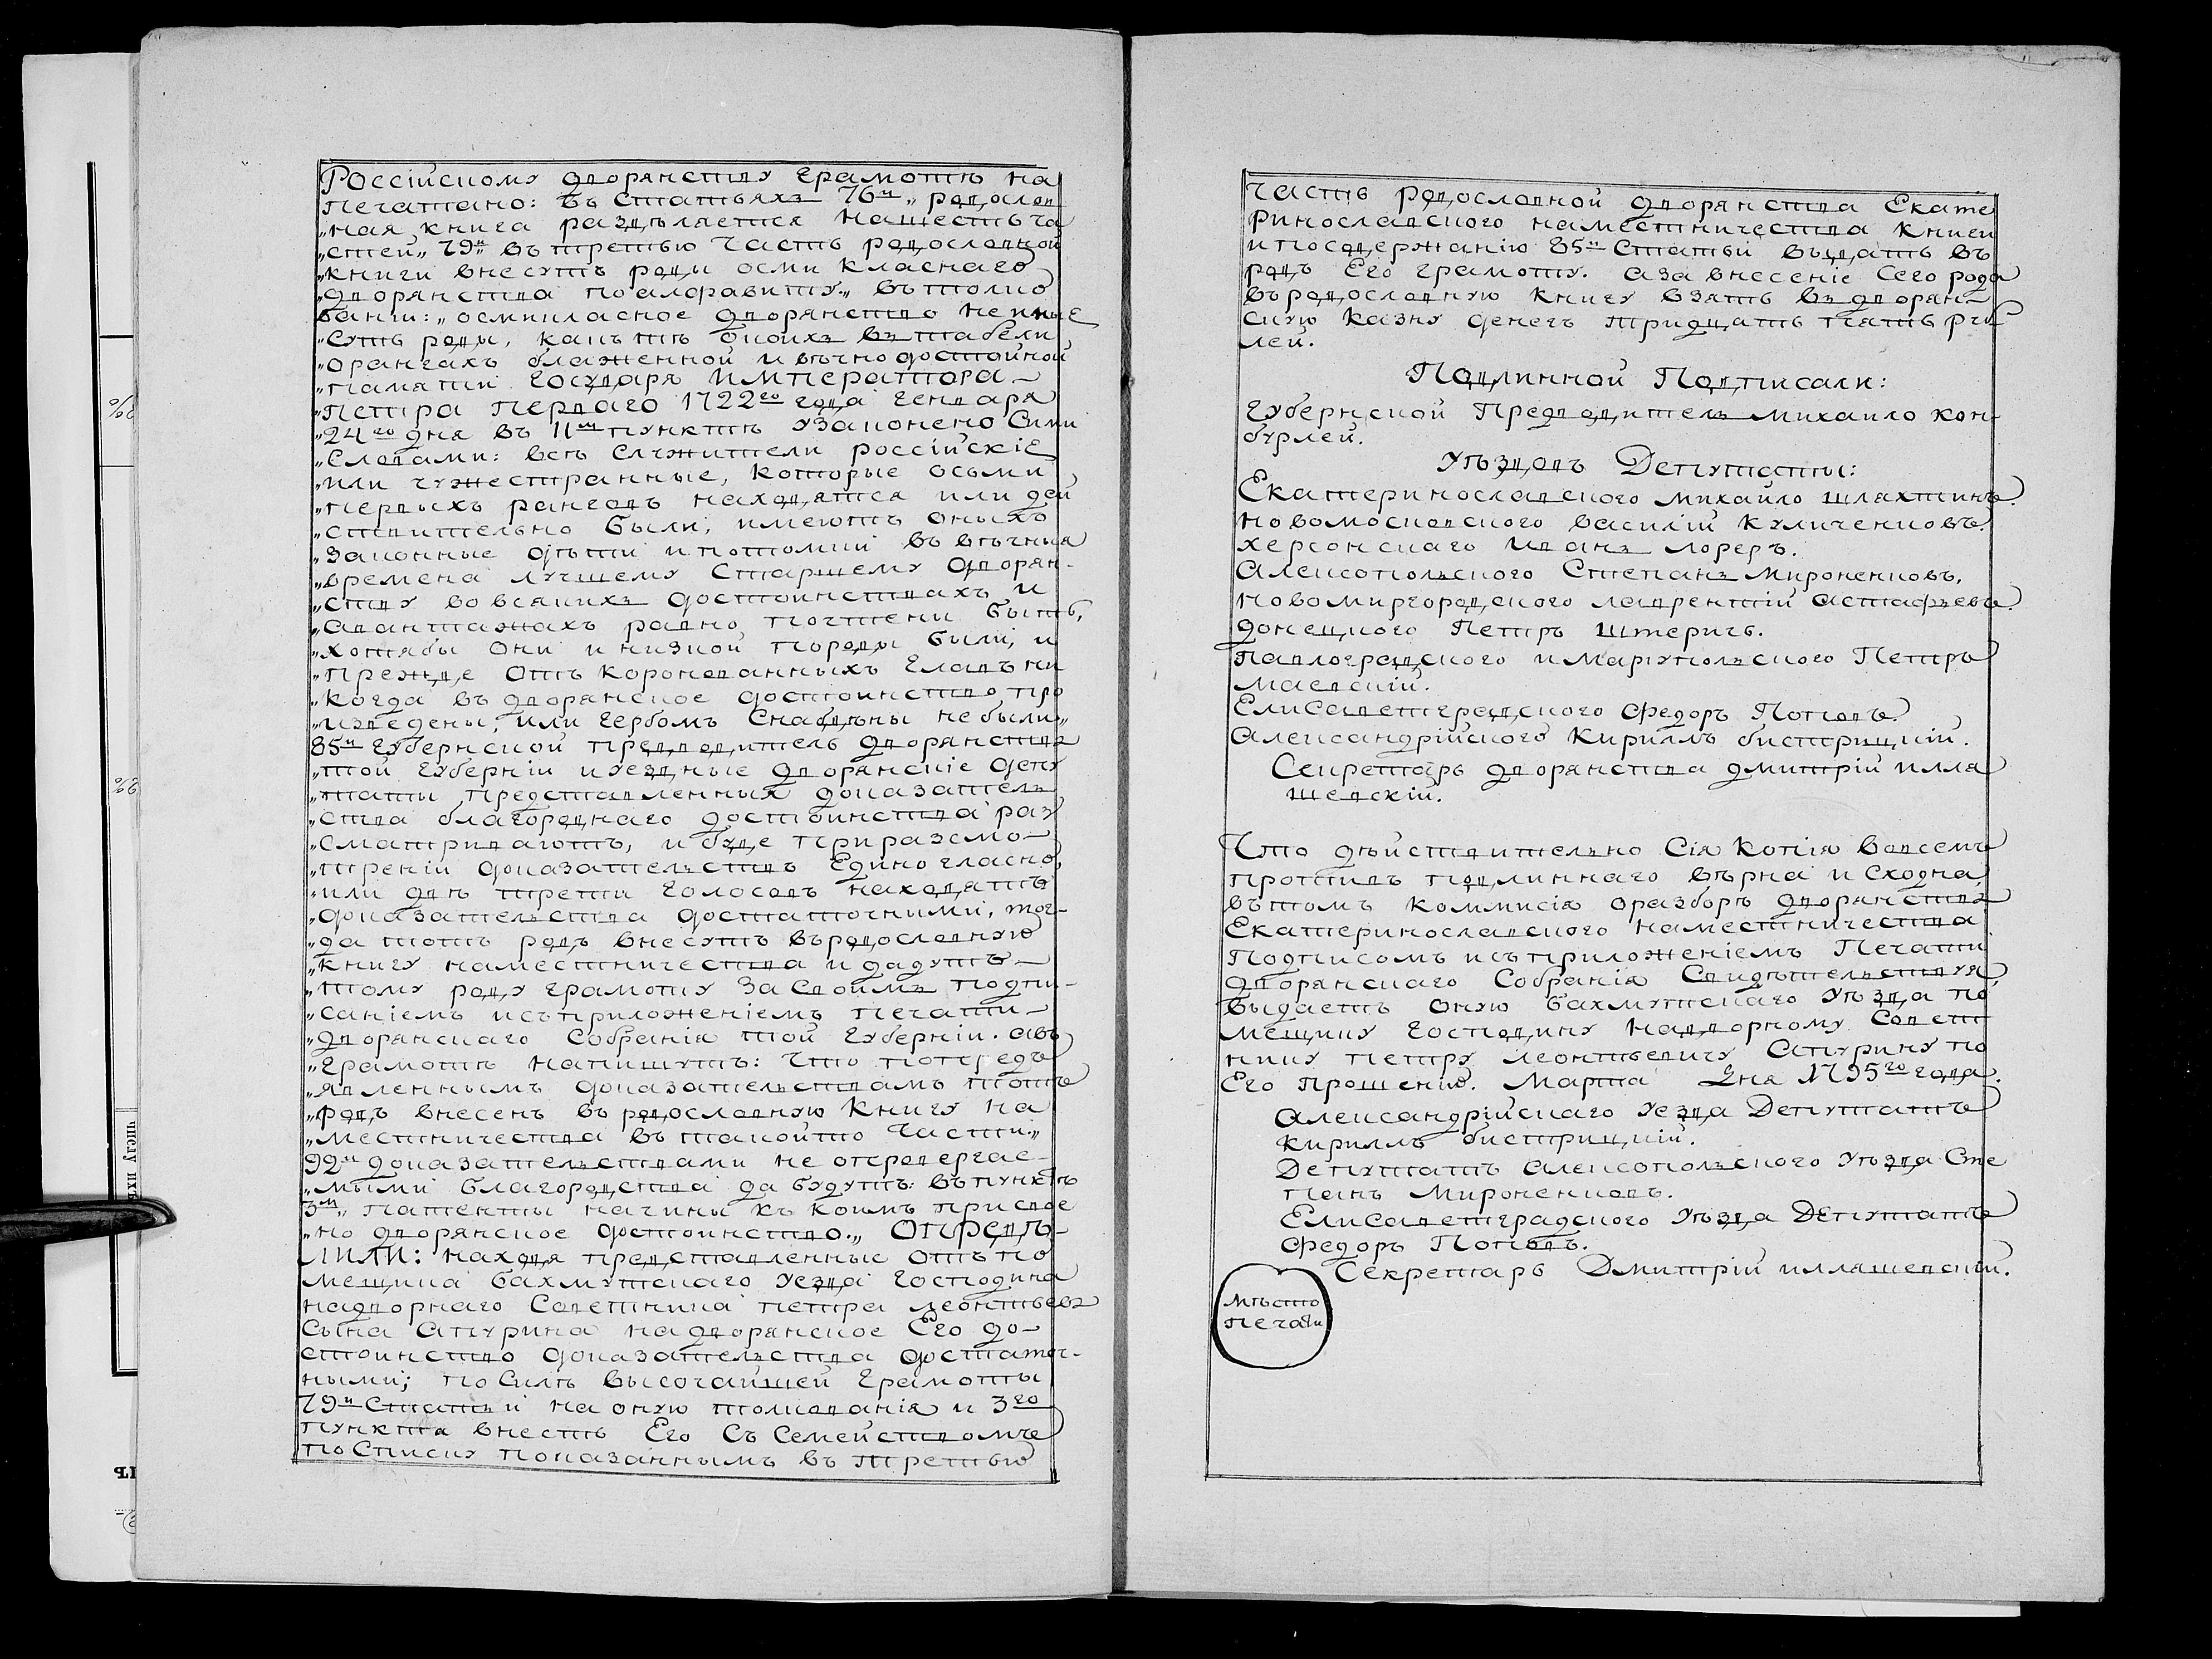 Россійскому дворянству грамотѣ на
печатано: въ статьяхъ 76й „родослов
„ная книга раздѣляется на шесть ча
„стей„ 79й въ третью часть родословной
„книги внесутъ роды осми класнаго
„дворянства по алфавиту„ въ толко
ваніи: „осмикласное дворянство не иные
„суть роды, какъ тѣ коихъ въ табели
„о рангахъ блаженной и вѣчно достойной
„памяти Государя Императора
„Петра Перваго 1722го года генваря
„24го дня въ 11м пунктѣ узаконено сими
„словами: всѣ служители россійскіе
„или чужестранные, которые осьми
„первыхъ ранговъ находятся или дей
„ствительно были, имеютъ оныхъ
„законные дѣти и потомки въ вѣчныя
„времена лучшему старшему дворян-
„ству во всякихъ достоинствахъ и
„авантажахъ равно почтены быть,
„хотябы они и низкой породы были, и
„прежде отъ коронованныхъ главъ ни
„когда въ дворянское достоинство про
„изведены, или гербомъ снабдѣны не были„
85й губернской предводитель дворянства
„той губерніи и уездные дворянскіе депу
„таты представленныя доказатель
„ства благороднаго достоинства раз
„сматриваютъ, и буде при разсмо-
„треніи доказательствъ единогласно,
„или двѣ трети голосовъ находятъ
„доказательства достаточными, тог-
„да тотъ родъ внесутъ въ родословную
„книгу наместничества и дадутъ
„тому роду грамоту за своимъ подпи-
„саніемъ и съ приложеніемъ печати
„дворянскаго собранія той губерніи. а въ
„грамотѣ напишутъ: что по предъ
„явленнымъ доказательствамъ тотъ
„родъ внесенъ въ родословную книгу на
„местничества въ такойто части„
92й доказательствами не опровергае-
„мыми благородства да будутъ: въ пунктѣ
3м„ патенты на чины къ коимъ присвое
„но дворянское достоинство„ ОПРЕДѢ-
ЛИЛИ: находя представленные отъ по
мещика бахмутскаго уезда господина
надворнаго советника петра леонтьева
сына апурина на дворянское его до-
стоинство доказательства достаточ-
ными; по силѣ высочайшей грамоты
79й статьи на оную толкованія и 3го
пункта внесть его съ семействомъ
по списку показаннымъ въ третью
часть родословной дворянства Екате
ринославского наместничества книги
и по содержанію 85й статьи выдать въ
родъ его грамоту. а за внесеніе сего рода
въ родословную книгу взять въ дворян-
скую казну денегъ тридцать пять руб
лей.
Подлинной Подписали:
Губернской Предводитель михаило кон-
бурлей.
Уѣздовъ Депутаты:
Екатеринославского михайло шляхтинъ.
новомосковского василій куличенковъ.
херсонскаго иванъ лореръ.
Алексопольского Степанъ мироненковъ.
новомиргородского лаврентій астафьевъ.
донецкого Петръ штеричъ.
павлоградского и маріупольского Петръ
маевскій.
Елисаветградского федоръ Поповъ.
александрійского кириллъ бистрицкій.
Секретарь дворянства дмитрій илля
шевскій.
Что дѣйствительно сія копія во всемъ
противъ подлиннаго вѣрна и сходна,
въ томъ коммисія о разборѣ дворянства
Екатеринославского наместничества
подписомъ и съ приложеніемъ печати
дворянскаго собранія свидѣтельствуя,
выдаетъ оную бахмутскаго уѣзда по
мещику господину надворному совет
нику петру леонтьевичу апурину по
его прошенію. марта дня 1795го года.
александрійскаго уезда Депутатъ
кириллъ бистрицкій.
Депутатъ алексопольского уѣзда Сте
панъ мироненковъ.
Елисаветградского уѣзда Депутатъ
федоръ Поповъ.
Секретарь Дмитрій илляшевскій.
мѣсто
печати